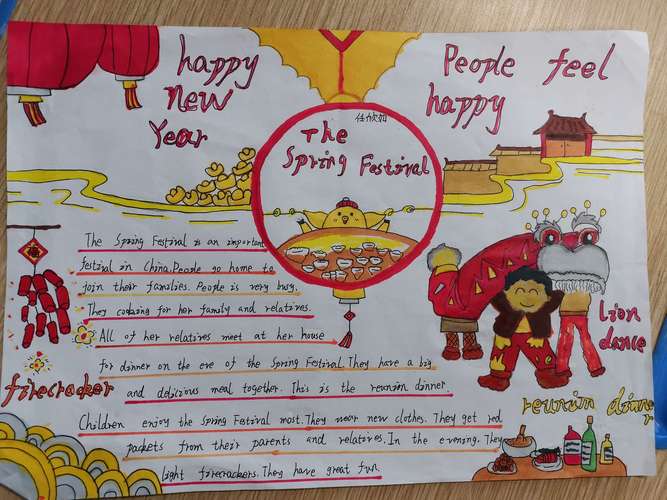 happy
new
Year
People feel
happy
任欣如
The
Spring Festival
The Spring Festival is an important
festival in China. People go home to
join their families. People is very busy.
They cooking for her family and relatives.
All of her relatives meet at her house
for dinner on the eve of the Spring Festival. They have a big
and delicious meal together. This is the reunion dinner.
Children enjoy the Spring Festival most. They wear new clothes. They get red
packets from their parents and relatives. In the evening. They
light firecrackers. They have great fun.
firecracker
Lion
dance
reunion dinner